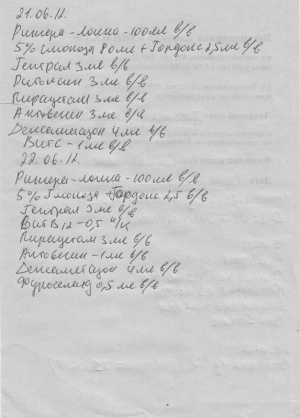 21.06.12.
Рингера-локка - 100мл в/в
5% глюкоза 80мл + Гордокс 2,5мл в/в
Гептрал 3мл в/в
3мл в/в
Пирацетам 3мл в/в
Актовегин 3мл в/в
Дексаметазон 4мл в/в
Вит С - 1мл в/в
22.06.12.
Рингера-локка - 100мл в/в
5% Глюкоза + Гордокс 2,5 в/в
Гептрал 3мл в/в
Вит В12 - 0,5 п/к
Пирацетам 3мл в/в
Актовегин - 1мл в/в
Дексаметазон 4мл в/в
Фуросемид 0,5мл в/в